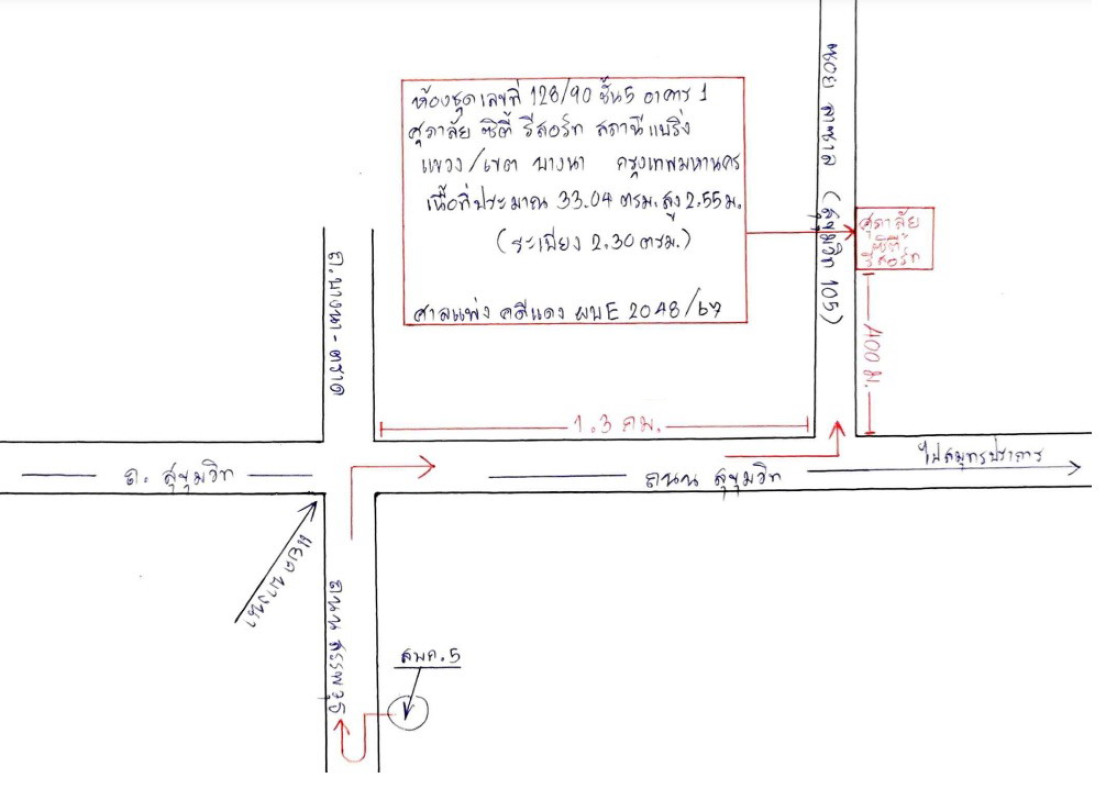 ห้องชุดเลขที่ 128/90 ชั้น5 อาคาร 1
ศุภาลัย ซิตี้ รีสอร์ท สถานีแบริ่ง
แขวง/เขต บางนา กรุงเทพมหานคร
เนื้อที่ประมาณ 33.04 ตรม. สูง 2.55 ม.
(ระเบียง 2.30 ตรม.)
ศาลแพ่ง คดีแดง ผบE 2048/67
ซอย ลาซาล (สุขุมวิท 105)
ศุภาลัย
ซิตี้
รีสอร์ท
400 ม.
ถ.บางนา-ตราด
1.3 กม.
ถ. สุขุมวิท
ถนน สุขุมวิท
ไปสมุทรปราการ
แยกบางนา
ถนน สรรพาวุธ
สพค.5